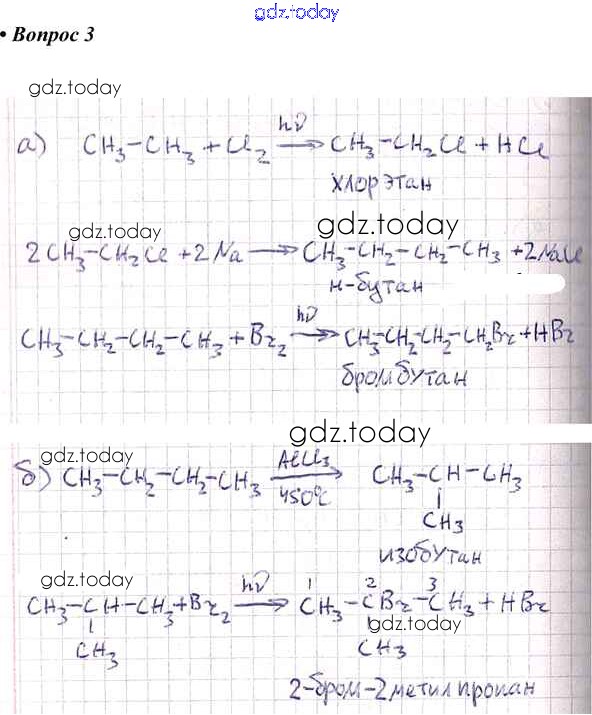 gdz.today
• Вопрос 3
gdz.today
а) CH3-CH3 + Cl2 —hν→ CH3-CH2Cl + HCl
хлорэтан
gdz.today
gdz.today
2CH3-CH2Cl + 2Na → CH3-CH2-CH2-CH3 + 2NaCl
н-бутан
CH3-CH2-CH2-CH3 + Br2 —hν→ CH3-CH2-CH2-CH2Br + HBr
бромбутан
gdz.today
gdz.today
б) CH3-CH2-CH2-CH3 —AlCl3, 450°C→ CH3-CH-CH3
CH3
изобутан
gdz.today
CH3-CH-CH3 + Br2 —hν→ 1 CH3- 2 CBr- 3 CH3 + HBr
gdz.today
CH3 CH3
2-бром-2метилпропан